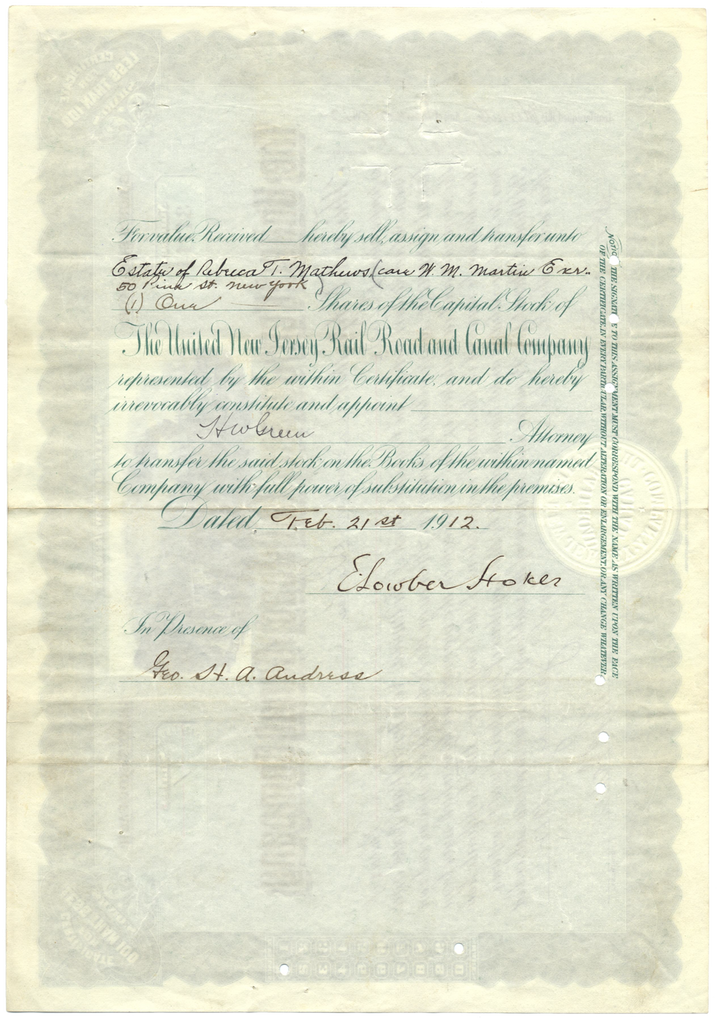 For value Received hereby sell, assign and transfer unto
Estate of Rebecca T. Mathews (care W. M. Martin Exr.
50 Pine St. New York)
(1) One Shares of the Capital Stock of
The United New Jersey Rail Road and Canal Company
represented by the within Certificate, and do hereby
irrevocably constitute and appoint
H W Green Attorney
to transfer the said stock on the Books of the within named
Company with full power of substitution in the premises.
Dated, Feb. 21st 1912.
E Lowber Stokes
In Presence of
Geo. H. A. Andress
NOTE. THE SIGNATURE TO THIS ASSIGNMENT MUST CORRESPOND WITH THE NAME AS WRITTEN UPON THE FACE
OF THE CERTIFICATE IN EVERY PARTICULAR WITHOUT ALTERATION OR ENLARGEMENT OR ANY CHANGE WHATEVER.